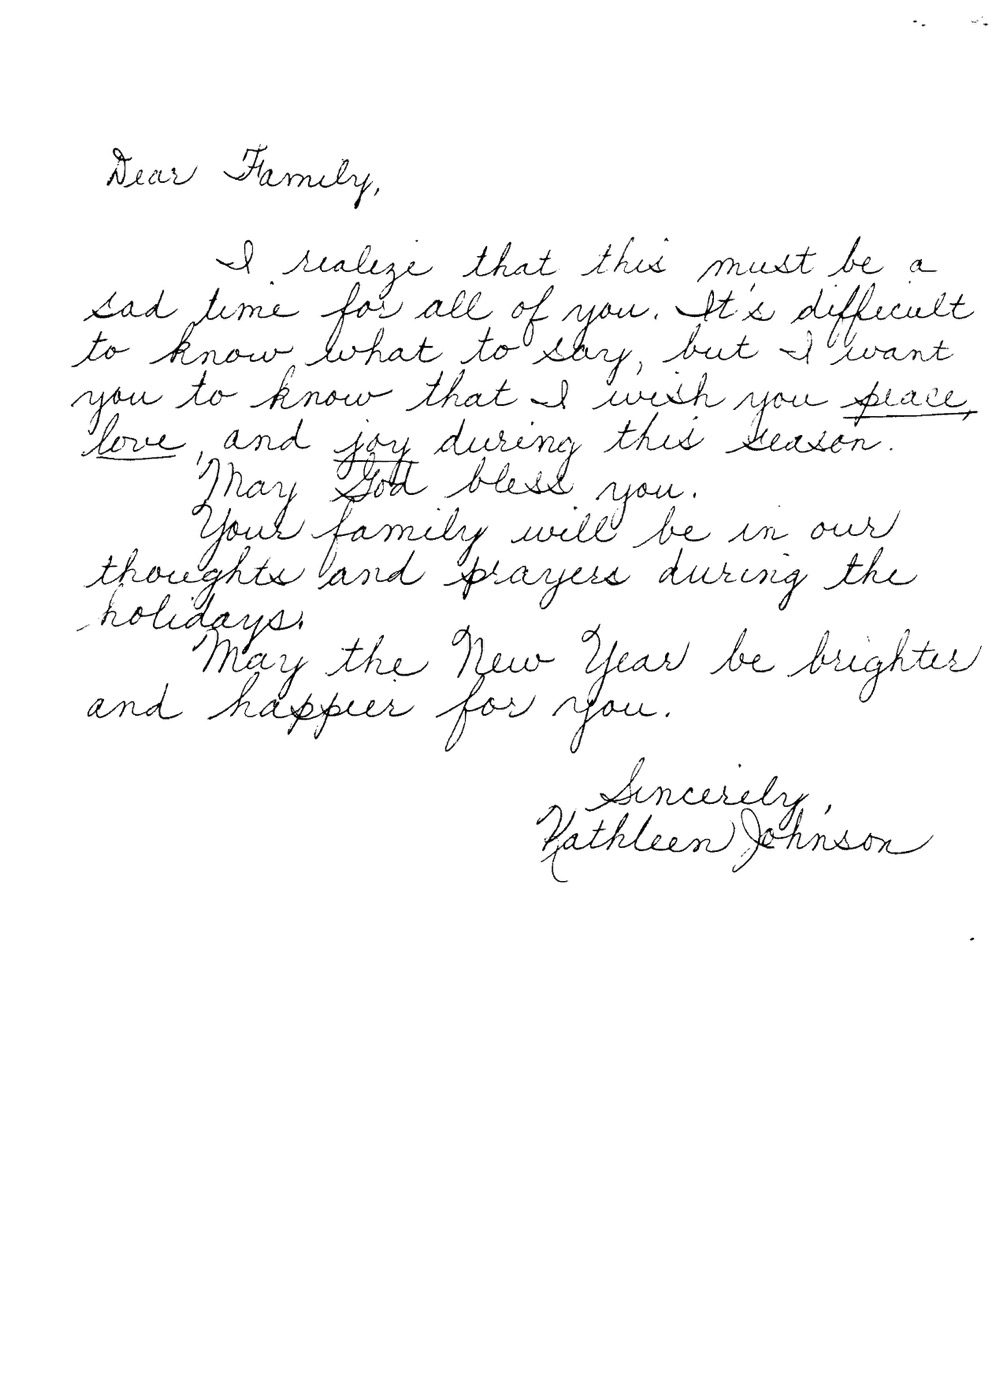 Dear Family,
I realize that this must be a
sad time for all of you. It's difficult
to know what to say, but I want
you to know that I wish you peace,
love, and joy during this season.
May God bless you.
Your family will be in our
thoughts and prayers during the
holidays.
May the New Year be brighter
and happier for you.
Sincerely,
Kathleen Johnson